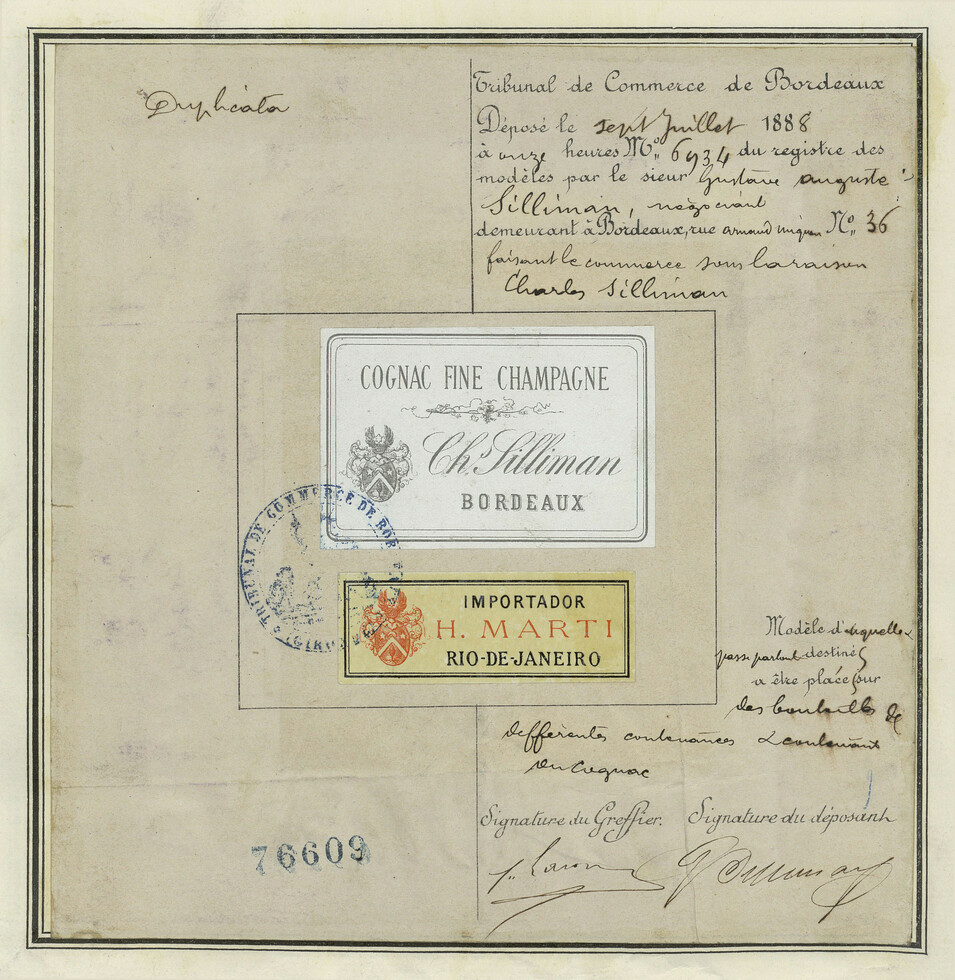 Duplicata
Tribunal de Commerce de Bordeaux
Déposé le sept Juillet 1888
à onze heures No. 6934 du registre des
modèles par le sieur Gustave auguste
Silliman, négociant
demeurant à Bordeaux, rue armand miqueu No. 36
faisant le commerce sous la raison
Charles Silliman
COGNAC FINE CHAMPAGNE
Chs. Silliman
BORDEAUX
TRIBUNAL DE COMMERCE DE BOR
IMPORTADOR
H. MARTI
RIO-DE-JANEIRO
Modèle d'etiquette &
passe partout destinés
a être placés sur
des bouteilles de
différentes contenances & contenant
du Cognac
Signature du Greffier. Signature du déposant
76609